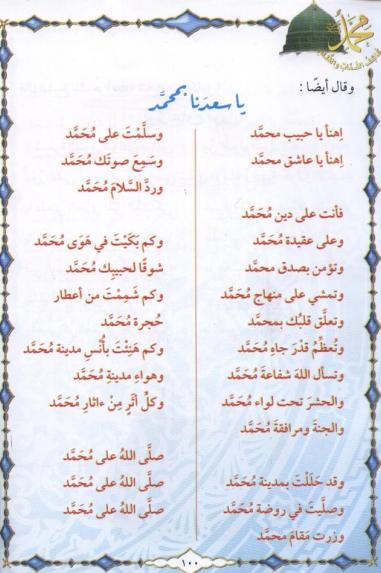 محمد
وقال أيضًا :
يا سعدنا بمحمَّد
اِهنأ يا حبيب محمَّد
اِهنأ يا عاشق محمَّد
فأنت على دين مُحَمَّد
وعلى عقيدة مُحَمَّد
وتؤمن بصدق محمَّد
وتمشي على منهاج مُحَمَّد
وتعلَّق قلبُك بمحمَّد
وتُعظِّمُ قدْرَ جاهِ مُحَمَّد
وتسأل اللهَ شفاعةَ مُحَمَّد
والحشرَ تحت لواء مُحَمَّد
والجنةَ ومرافقةَ مُحَمَّد
وقد حَلَلْتَ بمدينة مُحَمَّد
وصلَّيتَ في روضة مُحَمَّد
وزرت مَقامَ محمَّد
وسلَّمْتَ على مُحَمَّد
وسَمِعَ صوتَك مُحَمَّد
وردَّ السَّلامَ مُحَمَّد
وكم بَكَيْتَ في هَوَى مُحَمَّد
شوقًا لحبيبِك مُحَمَّد
وكم شَمِمْتَ من أعطار
حُجرة مُحَمَّد
وكم هَنِئْتَ بأُنْسِ مدينة مُحَمَّد
وهواءِ مدينةِ مُحَمَّد
وكلِّ أثرٍ مِنْ ءاثارِ مُحَمَّد
صلَّى اللهُ على مُحَمَّد
صلَّى اللهُ على مُحَمَّد
صلَّى اللهُ على مُحَمَّد
١٠٠